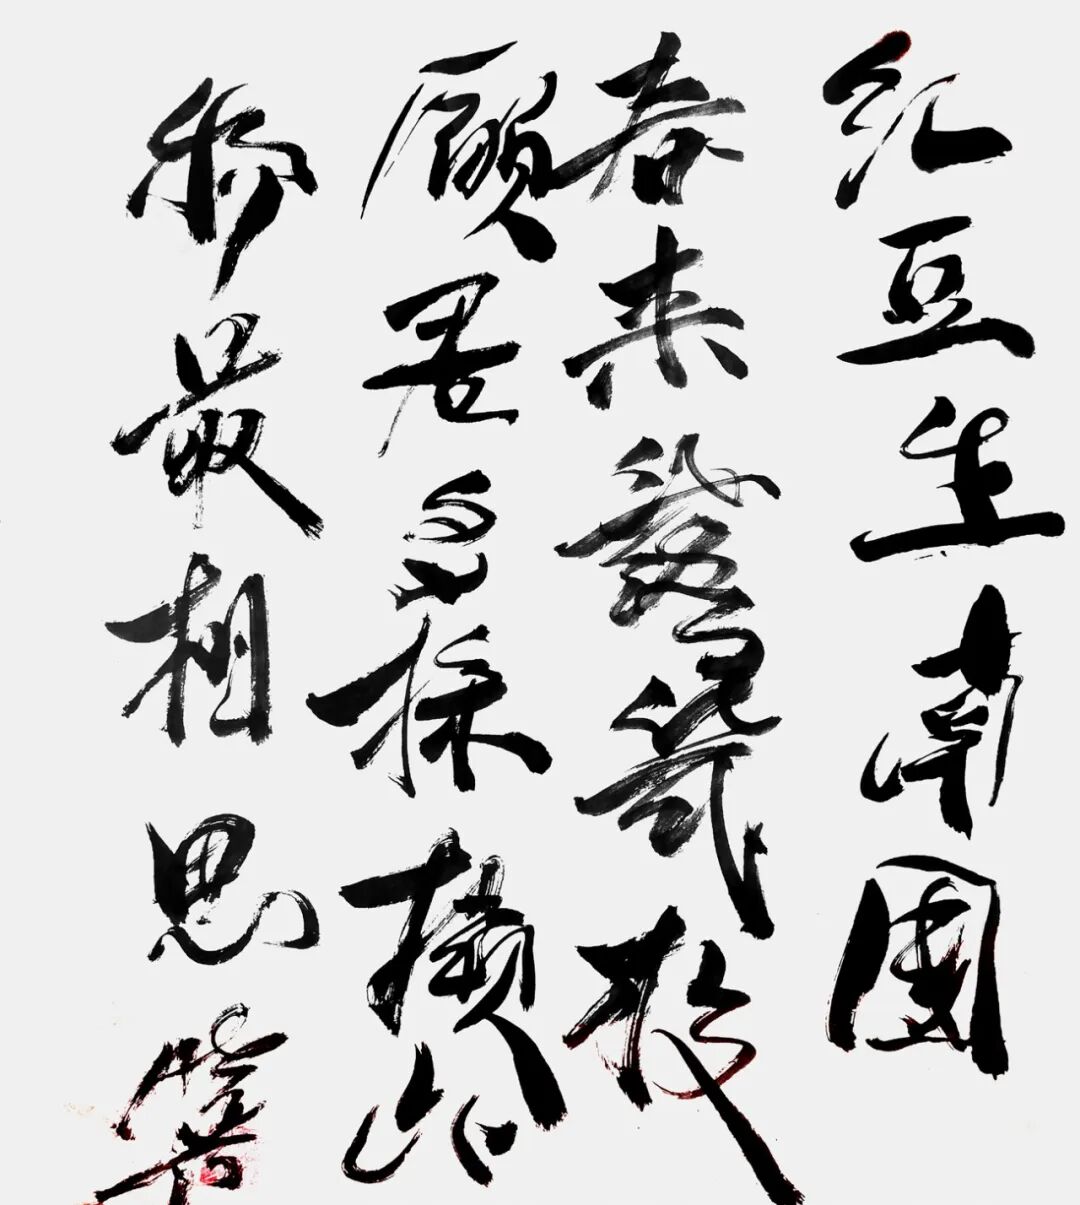 红豆生南國
春来發幾枝
願君多採擷此
物最相思